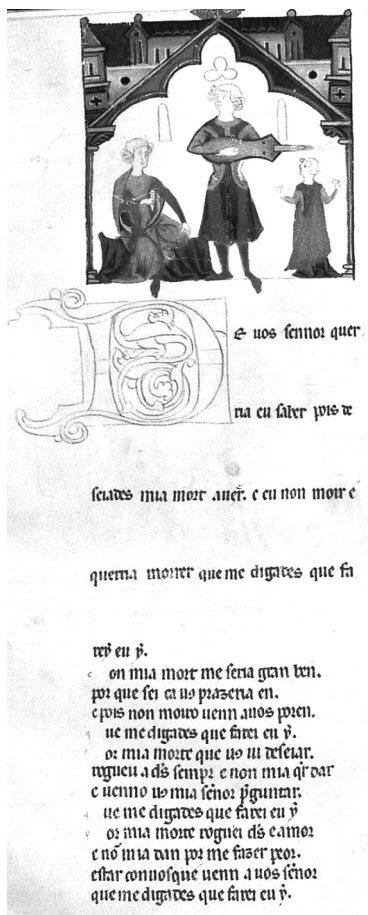 E uos sennor quer
ria eu saber pois de
seiades mia mort auer̃. e eu non moir e
querria morrer que me digades que fa
rey eu ỹ.
on mia mort me seria gran ben.
por que sei ca uꝯ prazeria en.
e pois non moiro uenn auos poren.
ue me digades que farei eu ỹ.
or mia morte que uꝯ ui deseiar.
rogueu a ds̃ sempr e non mia qr̃ dar
e uenno uꝯ mia sen̄or p̃guntar.
ue me digades que farei eu ỹ
or mia morte roguei ds̃ e amor
e nõ mia dan por me fazer peor.
estar conuosque uenn a uos sen̄or
que me digades que farei eu ỹ.